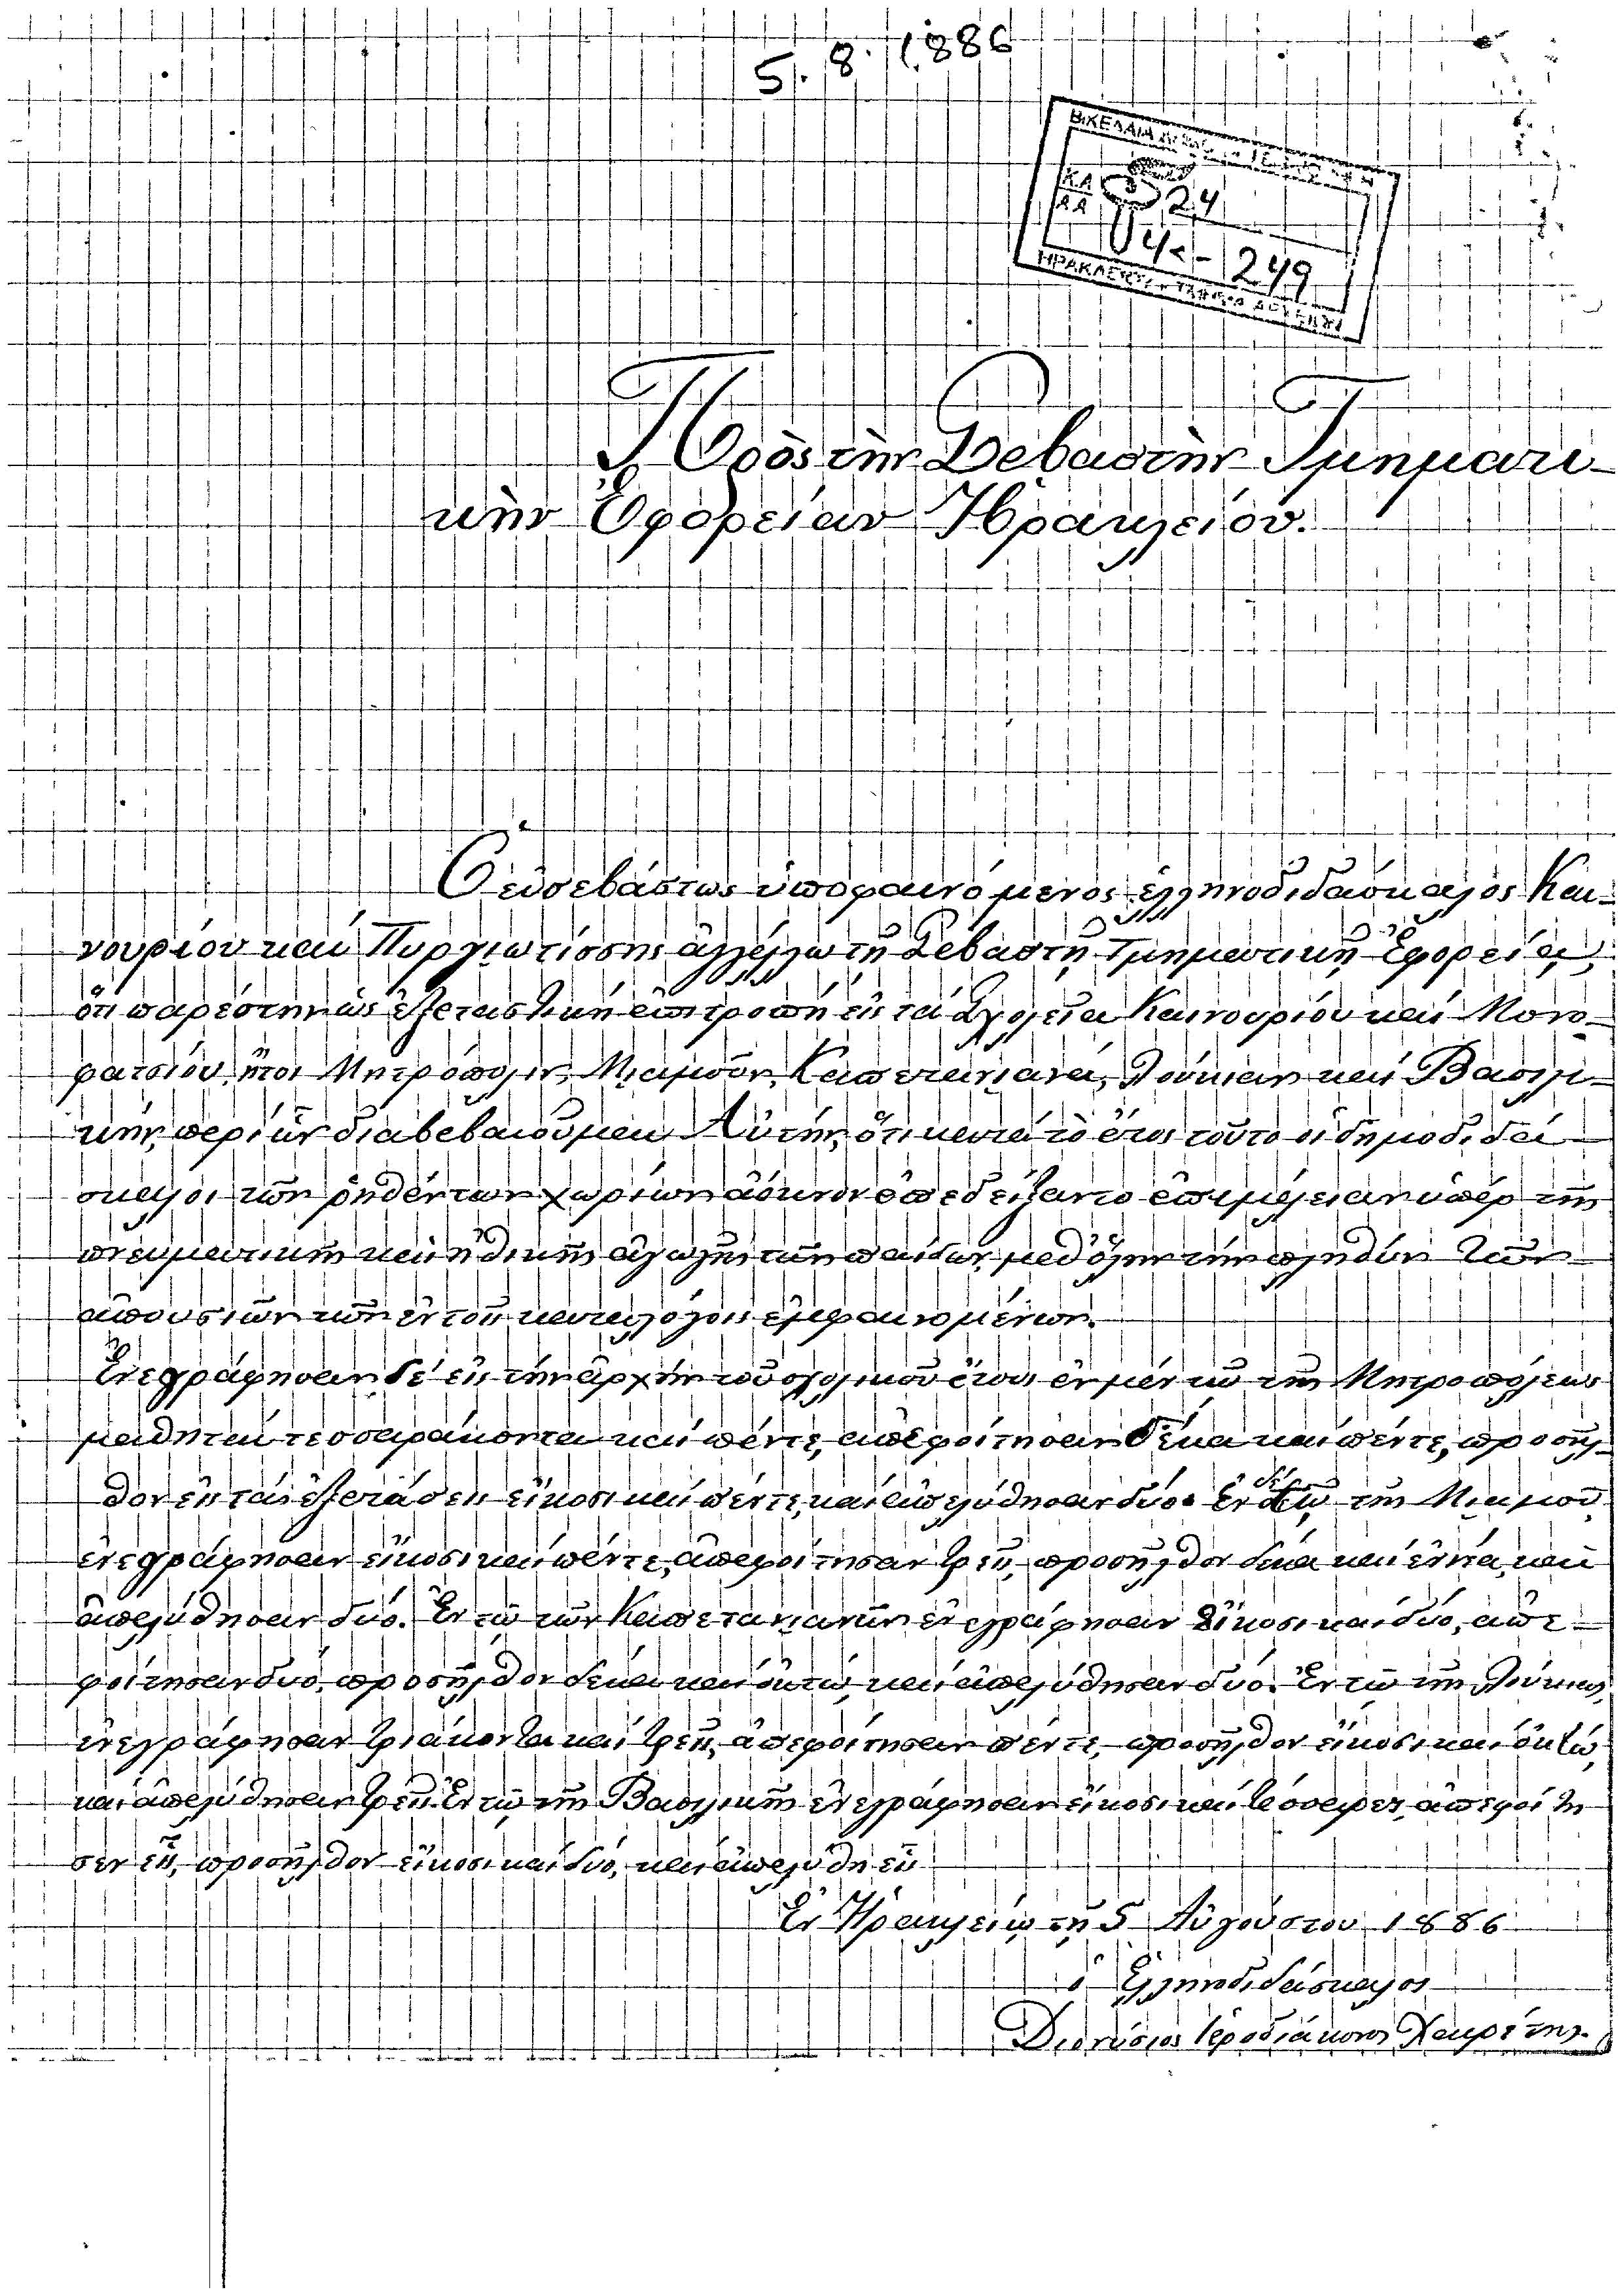 5. 8. 1886
ΒΙΚΕΛΑΙΑ
24
249
Πρὸς τὴν Σεβαστὴν Τμηματι-
κὴν Ἐφορείαν Ἡρακλείου.
Ὁ εὐσεβάστως ὑποφαινόμενος ἑλληνοδιδάσκαλος Και-
νουρίου καί Πυργιωτίσσης ἀγγέλλω τῇ Σεβαστῇ Τμηματικῇ Ἐφορείᾳ,
ὅτι παρέστην ὡς ἐξεταστική ἐπιτροπή εἰς τά Σχολεῖα Καινουρίου καί Μονο-
φατσίου, ἤτοι Μητρόπολιν, Μιαμοῦν, Καπετανιανά, Λούκιαν καί Βασιλι-
κήν, περί ὧν διαβεβαιοῦμαι Αὐτήν, ὅτι κατά τὸ ἔτος τοῦτο οἱ δημοδιδά-
σκαλοι τῶν ῥηθέντων χωρίων ἄοκνον ἐπεδείξαντο ἐπιμέλειαν ὑπέρ τῆς
πνευματικῆς καί ἠθικῆς ἀγωγῆς τῶν παίδων, μεθ' ὅλην τήν πληθύν τῶν
ἀπουσιῶν τῶν ἐν τοῖς καταλόγοις ἐμφαινομένων.
Ἐνεγράφησαν δέ εἰς τήν ἀρχήν τοῦ σχολικοῦ ἔτους ἐν μέν τῷ τῆς Μητροπόλεως
μαθηταί τεσσαράκοντα καί πέντε, ἀπεφοίτησαν δέκα καί πέντε, προσῆλ-
θον εἰς τάς ἐξετάσεις εἴκοσι καί πέντε, καί ἀπελύθησαν δύο. Ἐν δέ τῷ τῆς Μιαμοῦ
ἐνεγράφησαν εἴκοσι καί πέντε, ἀπεφοίτησαν τρεῖς, προσῆλθον δέκα καί ἐννέα, καί
ἀπελύθησαν δύο. Ἐν τῷ τῶν Καπετανιανῶν ἐνεγράφησαν εἴκοσι καί δύο, ἀπε-
φοίτησαν δύο, προσῆλθον δέκα καί ὀκτώ, καί ἀπελύθησαν δύο. Ἐν τῷ τῆς Λούκιας
ἐνεγράφησαν τριάκοντα καί τρεῖς, ἀπεφοίτησαν πέντε, προσῆλθον εἴκοσι καί ὀκτώ,
καί ἀπελύθησαν τρεῖς. Ἐν τῷ τῆς Βασιλικῆς ἐνεγράφησαν εἴκοσι καί τέσσαρες, ἀπεφοίτη
σεν εἷς, προσῆλθον εἴκοσι καί δύο, καί ἀπελύθη εἷς
Ἐν Ἡρακλείῳ τῇ 5 Αὐγούστου 1886
ὁ Ἑλληνοδιδάσκαλος
Διονύσιος Ἱεροδιάκονος